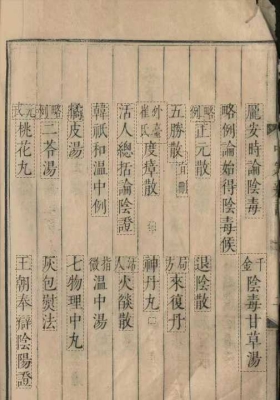 龐安時論陰毒 千金陰毒甘草湯
略例論始得陰毒候
略例正元散 退陰散
五勝散宜刪 局方來復丹
外臺崔氏度瘴散 神丹丸
活人總括論陰證 活人火燄散
韓祇和溫中例 指微溫中湯
橘皮湯 七物理中丸
略例二苓湯 灰包熨法
元戎桃花丸 王朝奉辯陰陽證